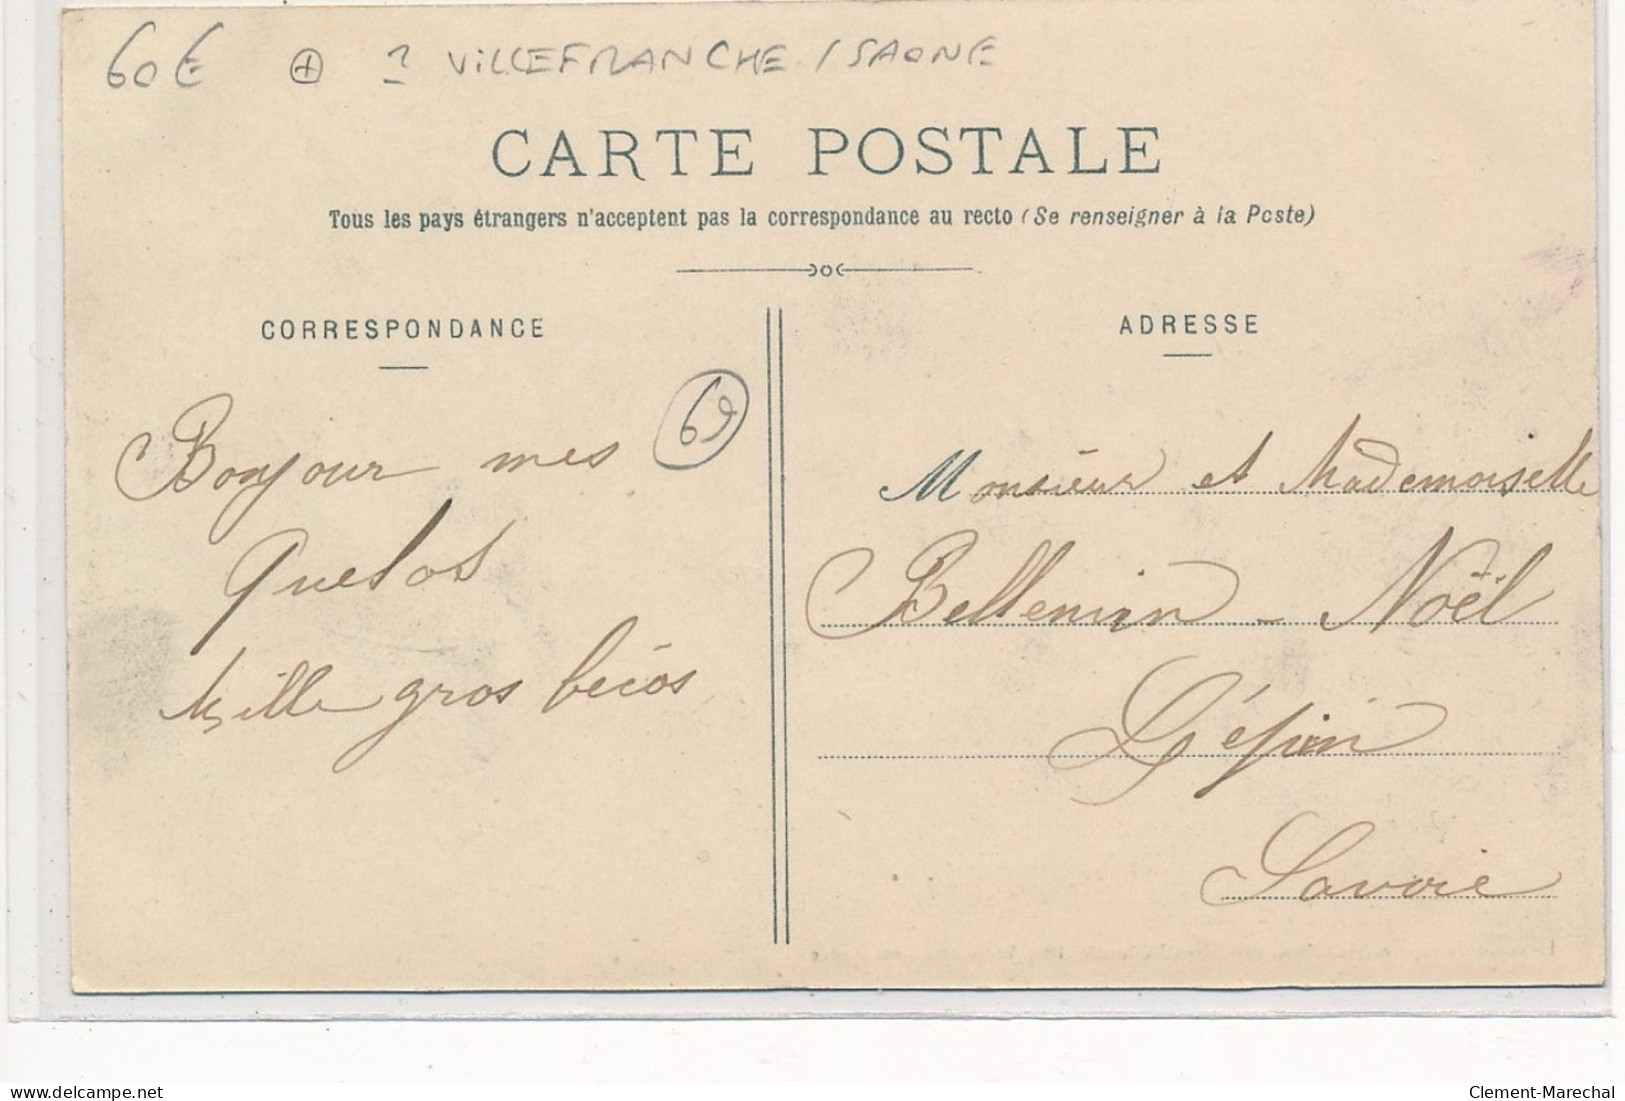 60€ + ? VILLEFRANCHE / SAONE
CARTE POSTALE
Tous les pays étrangers n'acceptent pas la correspondance au recto (Se renseigner à la Poste)
CORRESPONDANCE
69
Bonjour mes
Quelos
Mille gros bécos
ADRESSE
Monsieur et Mademoiselle
Bellemin - Noël
Lépin
Savoie
www.delcampe.net
Clement-Marechal